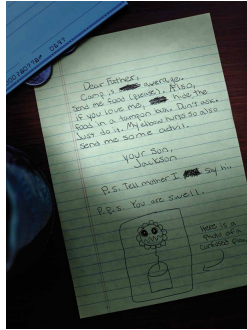 Dear Father,
Camp is average.
Send me food (please). Also,
if you love me, hide the
food in a tampon box. Don't ask.
Just do it. My elbow hurts so also
send me some advil.
your Son,
Jackson
P.S. Tell mother I say hi.
P.P.S. You are swell.
Here is a
photo of a